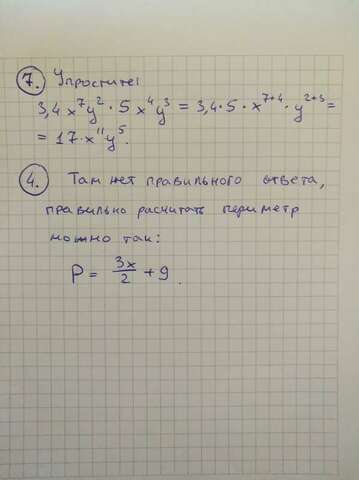 7. Упростите!
3,4 x⁷y² · 5 x⁴y³ = 3,4 · 5 · x⁷⁺⁴ · y²⁺³ =
= 17 · x¹¹y⁵.
4. Там нет правильного ответа,
правильно расчитать периметр
можно так:
P = 3x/2 + 9.